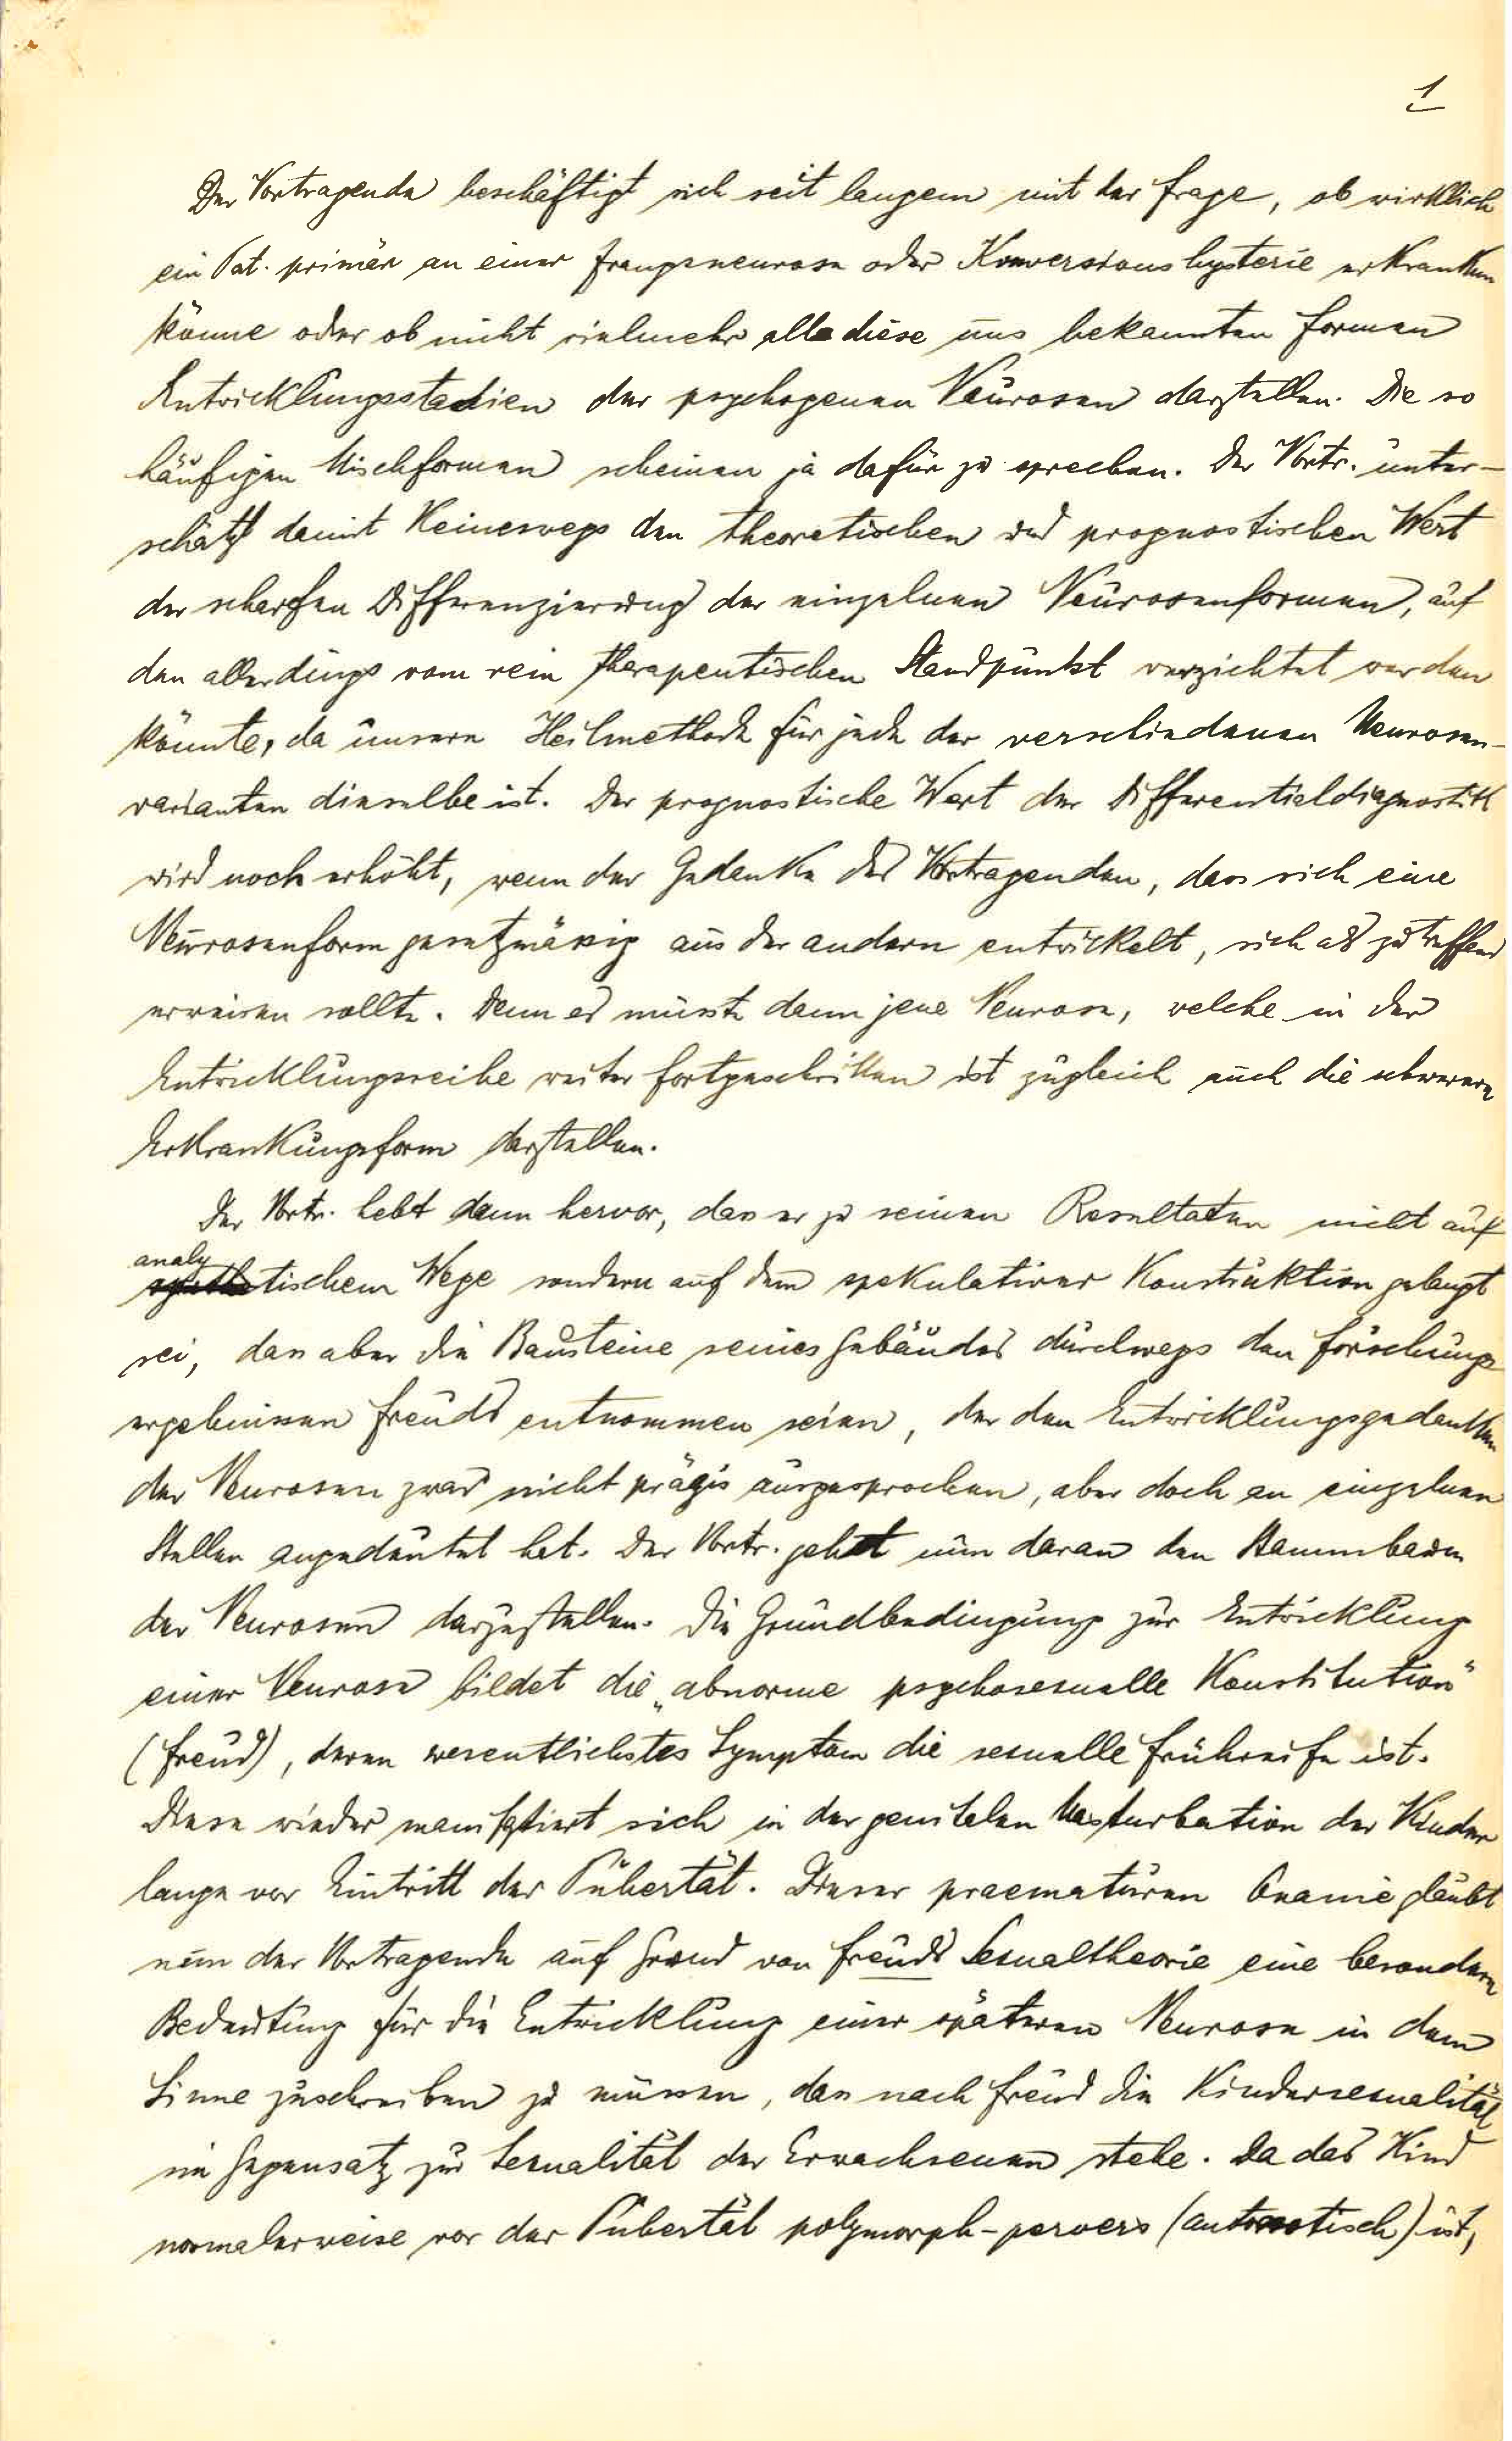 1
Der Vortragende beschäftigt sich seit langem mit der Frage, ob wirklich
ein Pat. primär an einer Zwangsneurose oder Konversionshysterie erkranken
könne oder ob nicht vielmehr alle diese uns bekannten Formen
Entwicklungsstadien der psychogenen Neurosen darstellen. Die so
häufigen Mischformen scheinen ja dafür zu sprechen. Der Vortr. unter-
schätzt damit keineswegs den theoretischen und prognostischen Wert
der scharfen Differenzierung der einzelnen Neurosenformen, auf
den allerdings vom rein therapeutischen Standpunkt verzichtet werden
könnte, da unsere Heilmethode für jede der verschiedenen Neurosen-
varianten dieselbe ist. Der prognostische Wert der Differentialdiagnostik
wird noch erhöht, wenn der Gedanke des Vortragenden, dass sich eine
Neurosenform gesetzmässig aus der andern entwickelt, sich als zutreffend
erweisen sollte. Denn es müsste dann jene Neurose, welche in der
Entwicklungsreihe weiter fortgeschritten ist zugleich auch die schwerere
Erkrankungsform darstellen.
Der Vortr. hebt dann hervor, dass er zu seinen Resultaten nicht auf
analytischem Wege sondern auf dem spekulativer Konstruktion gelangt
sei, dass aber die Bausteine seines Gebäudes durchwegs den Forschungs
ergebnissen Freuds entnommen seien, der den Entwicklungsgedanken
der Neurosen zwar nicht präzis ausgesprochen, aber doch an einzelnen
Stellen angedeutet hat. Der Vortr. geht nun daran den Stammbaum
der Neurosen darzustellen. Die Grundbedingung zur Entwicklung
einer Neurose bildet die „abnorme psychosexuelle Konstitution"
(Freud), deren wesentlichstes Symptom die sexuelle Frühreife ist.
Diese wieder manifestiert sich in der genitalen Masturbation der Kinder
lange vor Eintritt der Pubertät. Dieser praematuren Onanie glaubt
nun der Vortragende auf Grund von Freuds Sexualtheorie eine besondere
Bedeutung für die Entwicklung einer späteren Neurose in dem
Sinne zuschreiben zu müssen, dass nach Freud die Kindersexualität
im Gegensatz zur Sexualität der Erwachsenen stehe. Da das Kind
normalerweise vor der Pubertät polymorph-pervers (autoerotisch) ist,